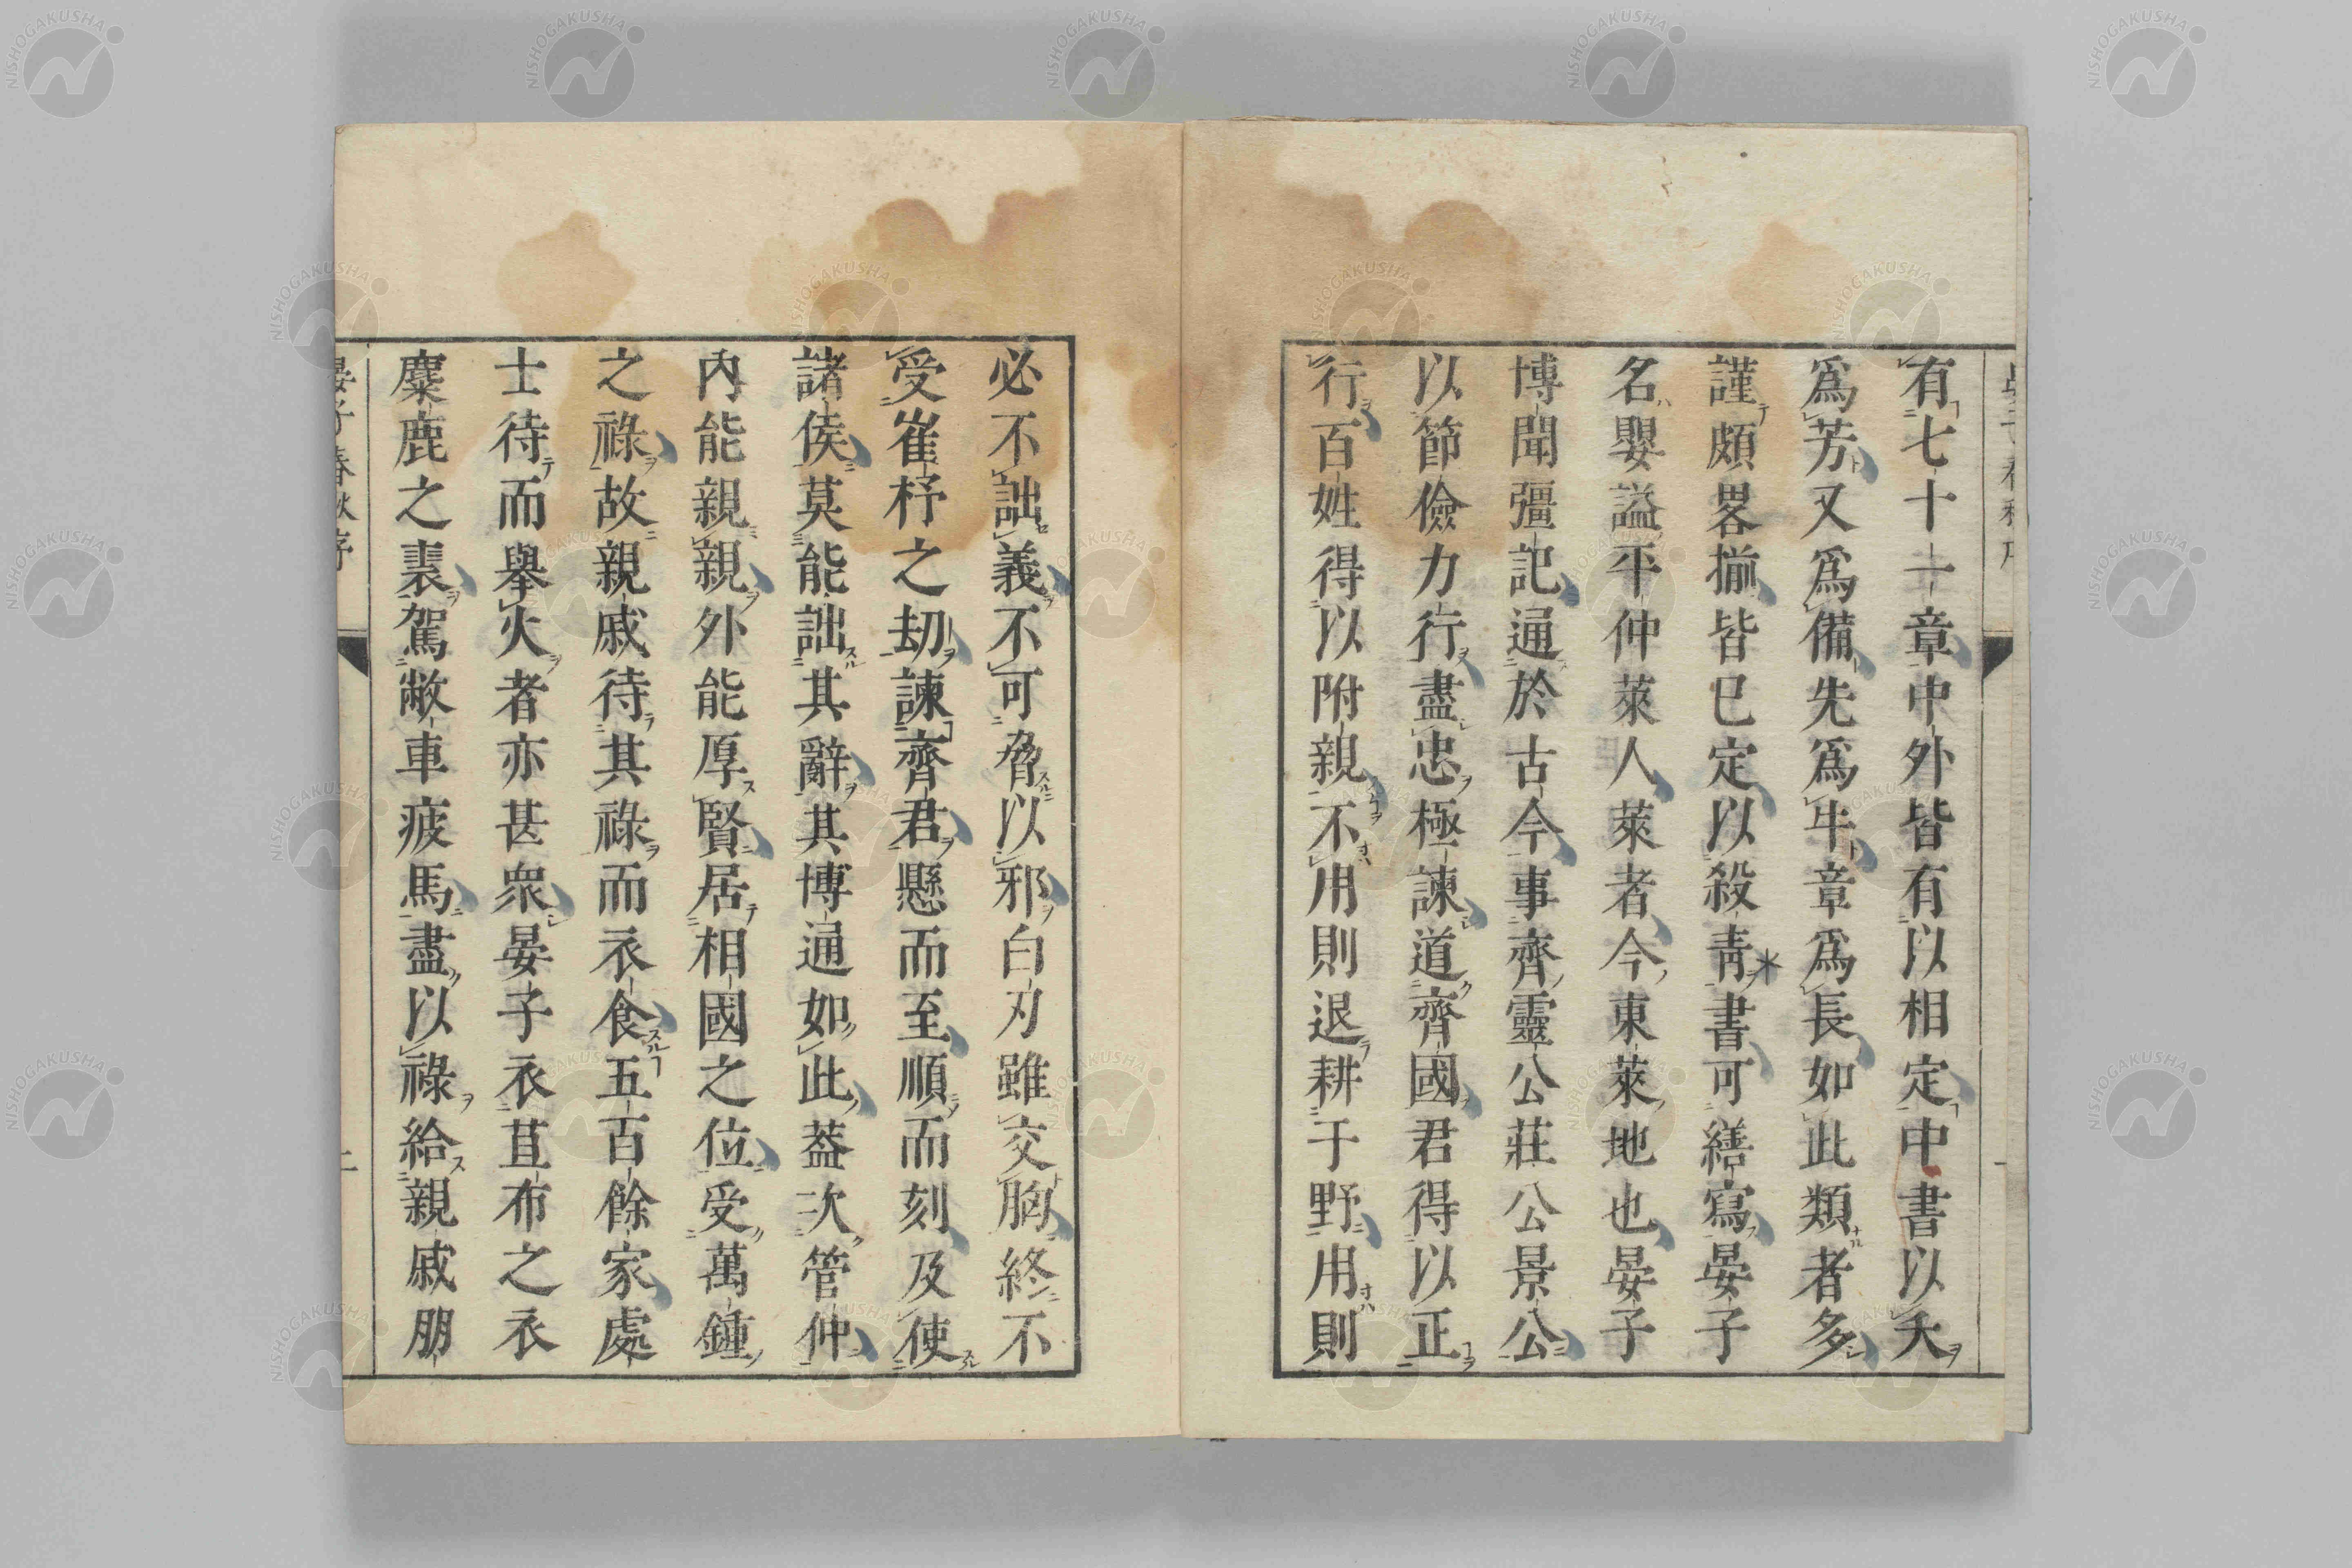 有七十一章中外皆有以相定中書以夭
爲芳又爲備先爲牛章爲長如此類者多
謹頗畧揃皆已定以殺靑書可繕寫晏子
名嬰謚平仲萊人萊者今東萊地也晏子
博聞彊記通於古今事齊靈公莊公景公
以節儉力行盡忠極諫道齊國君得以正
行百姓得以附親不用則退耕于野用則
必不詘義不可脅以邪白刃雖交胸終不
受崔杼之劫諫齊君懸而至順而刻及使
諸侯莫能詘其辭其博通如此葢次管仲
內能親親外能厚賢居相國之位受萬鍾
之祿故親戚待其祿而衣食五百餘家處
士待而擧火者亦甚衆晏子衣苴布之衣
麋鹿之裘駕敝車疲馬盡以祿給親戚朋
晏子春秋序
二
NISHOGAKUSHA